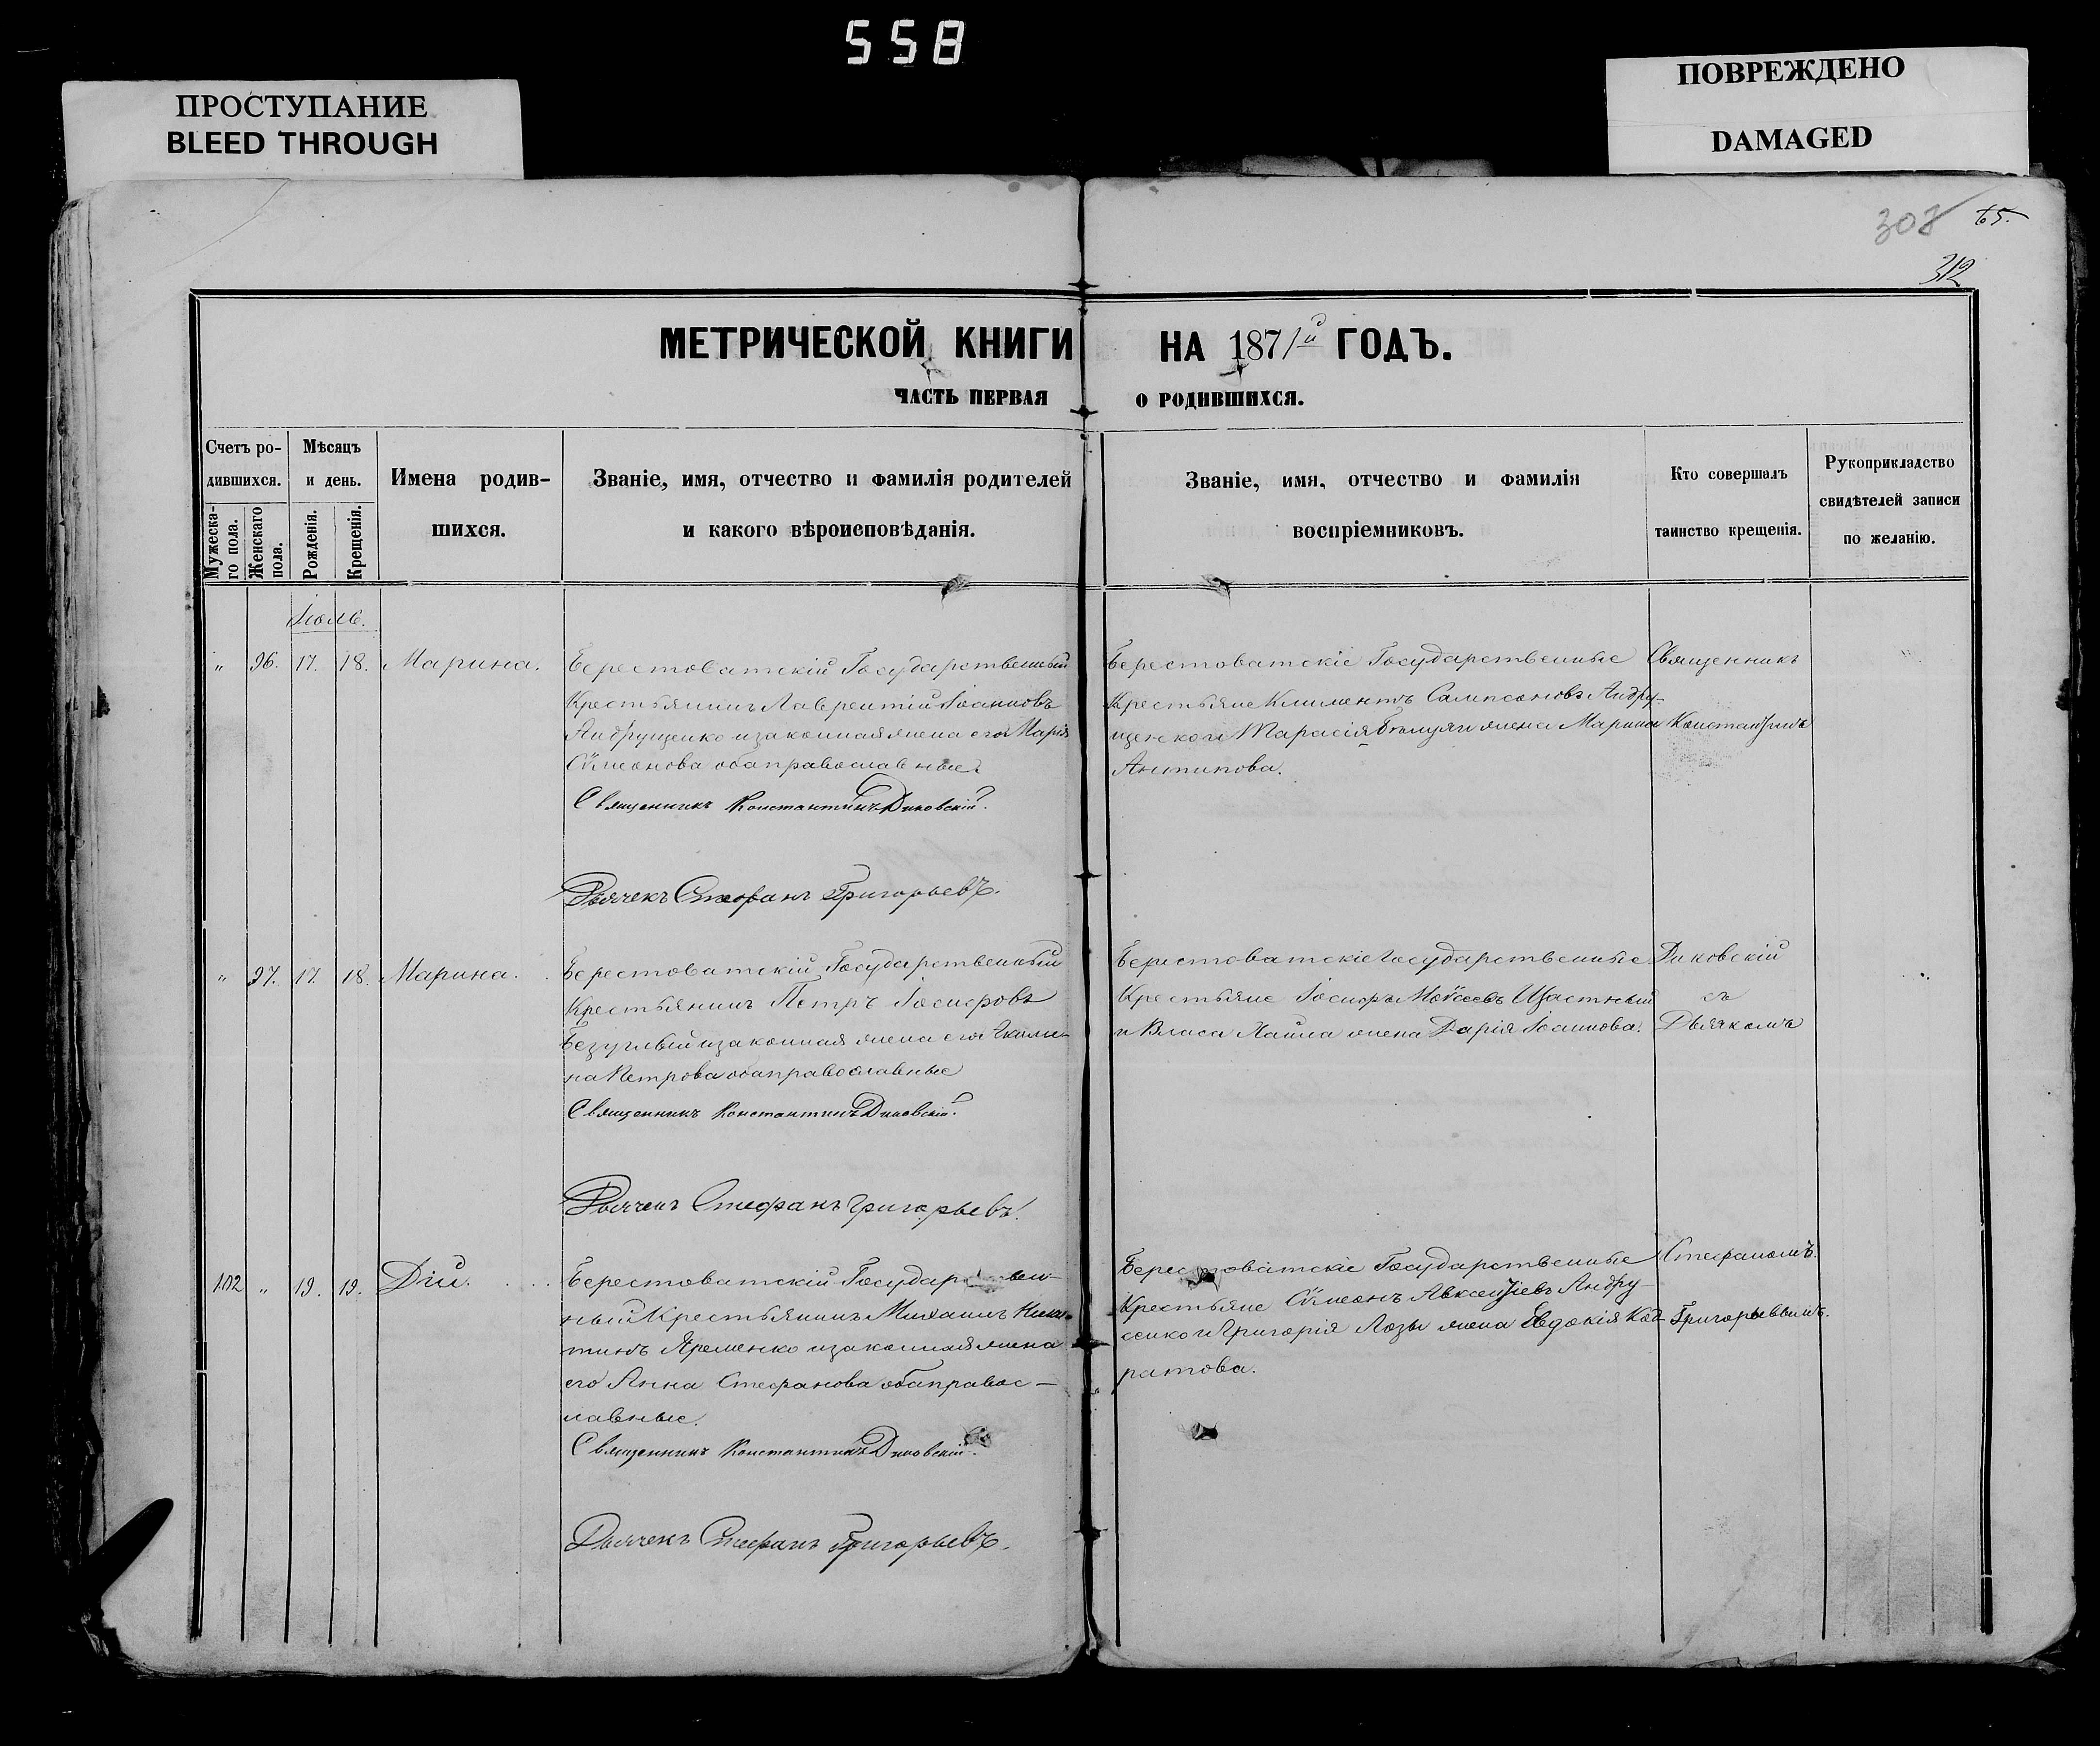 558
ПРОСТУПАНИЕ
BLEED THROUGH
ПОВРЕЖДЕНО
DAMAGED
65.
312
МЕТРИЧЕСКОЙ КНИГИ НА 1871й ГОДЪ.
ЧАСТЬ ПЕРВАЯ О РОДИВШИХСЯ.
Счетъ ро-
дившихся.
Мужеска-
го пола.
Женскаго
пола.
Мѣсяцъ
и день.
Рожденія.
Крещенія.
Имена родив-
шихся.
Званіе, имя, отчество и фамилія родителей
и какого вѣроисповѣданія.
Званіе, имя, отчество и фамилія
воспріемниковъ.
Кто совершалъ
таинство крещенія.
Рукоприкладство
свидѣтелей записи
по желанію.
Іюль.
" 96. 17. 18. Марина.
Берестоватскій Государственный
Крестьянинъ Лаврентій Іоанновъ
Андрущенко изаконная жена его Марія
Сѵмеонова обаправославные.
Священникъ Константинъ Диковскій.
Дьячекъ Стефанъ Григорьевъ.
Берестоватскіе Государственные
Крестьяне Климентъ Сампсоновъ Андру-
щенко и Тарасія жена Марина
Антипова.
Священникъ
Константинъ
" 97. 17. 18. Марина.
Берестоватскій Государственный
Крестьянинъ Петръ Іосифовъ
Безуглый изаконная жена его
на Петрова обаправославные
Священникъ Константинъ Диковскій.
Дьячекъ Стефанъ Григорьевъ.
Берестоватскіе Государственные
Крестьяне Іосифъ Моѵсеевъ Щастный
и Власа жена Дарія Іоаннова.
Диковскій
съ
Дьячкомъ
102 " 19. 19. Дій.
Берестоватскій Государствен-
ный Крестьянинъ Михаилъ Ники-
тинъ Яременко изаконная жена
его Анна Стефанова обаправос-
лавные.
Священникъ Константинъ Диковскій.
Дьячекъ Стефанъ Григорьевъ.
Берестоватскіе Государственные
Крестьяне Сѵмеонъ Авксентіевъ Андру-
сенко и Григорія Лозы жена Евдокія Код-
ратова.
Стефаномъ
Григорьевымъ.